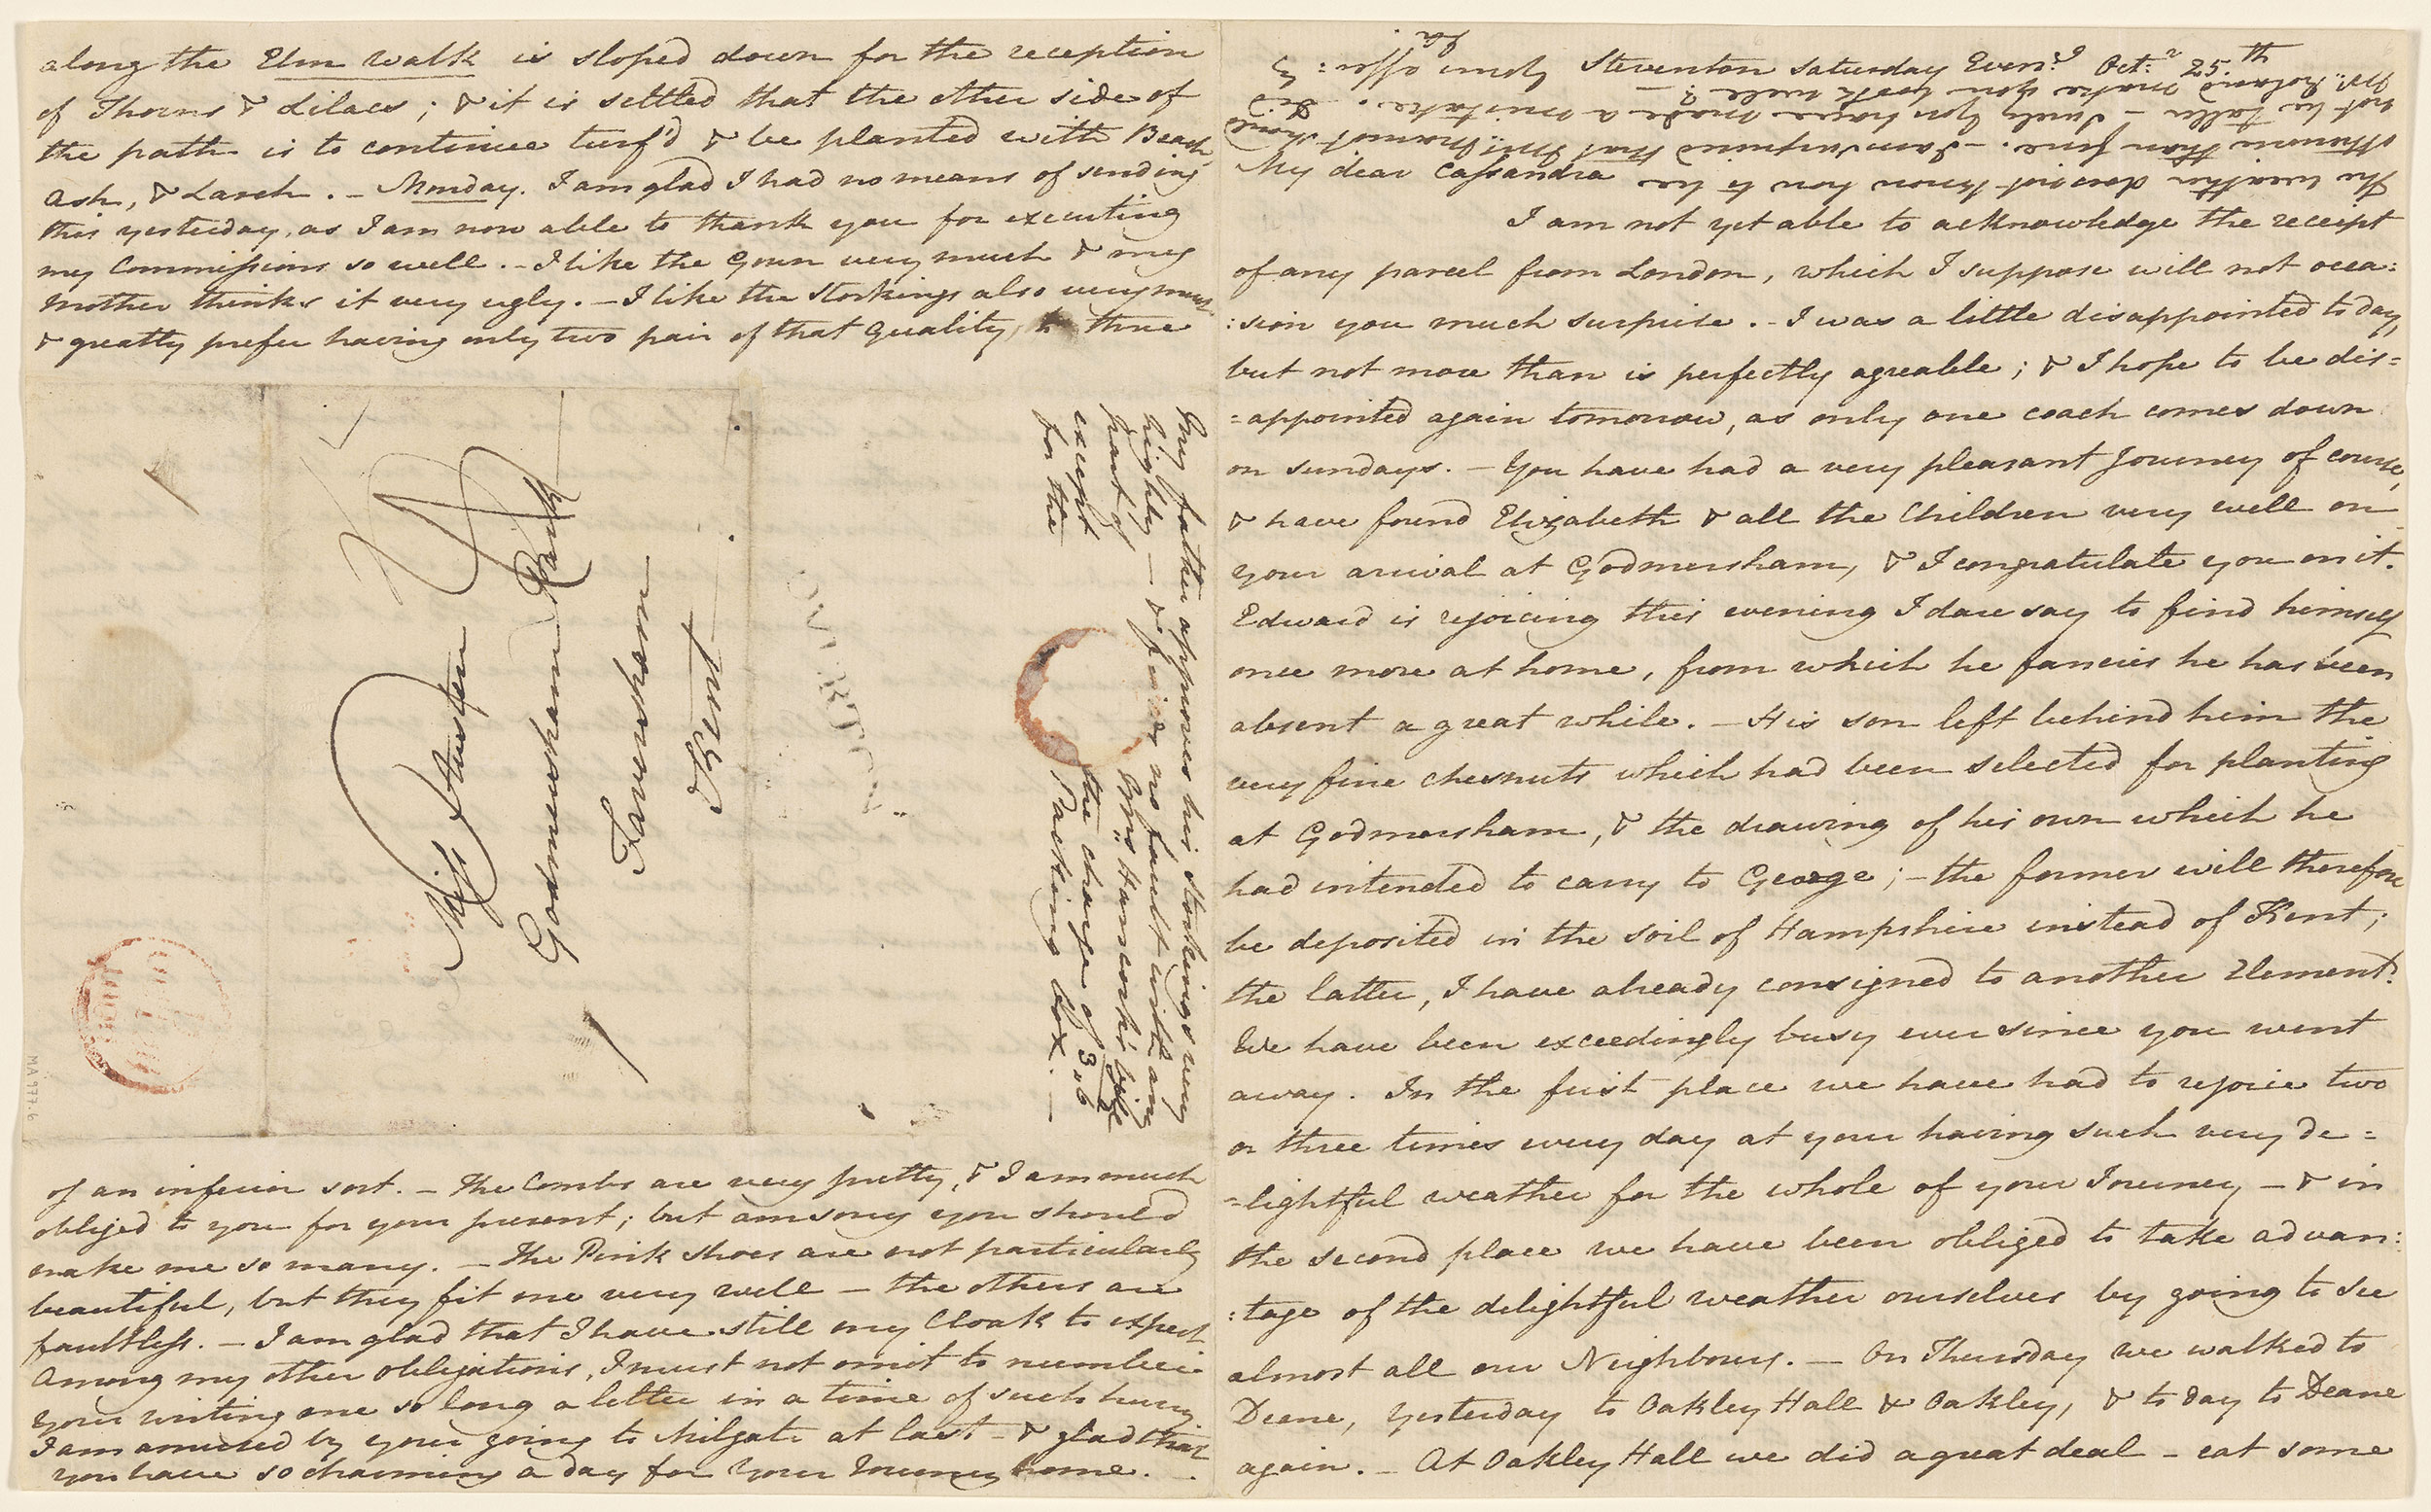 along the Elm Walk is sloped down for the reception
of Thorns & Lilacs; & it is settled that the other side of
the path is to continue turf'd & be planted with Beech,
Ash, & Larch. - Monday. I am glad I had no means of sending
this yesterday, as I am now able to thank you for executing
my Commissions so well. - I like the Gown very much & my
Mother thinks it very ugly. - I like the Stockings also very much
& greatly prefer having only two pair of that quality, to three
Miss Austen
Godmersham Park
Faversham
Kent
OVERTON
My father approves his Stockings very
highly — & finds no fault with any
part of Mrs: Hancock's bill
except the charge of 3"6
for the Packing box. —
of an inferior sort. - The Combs are very pretty, & I am much
obliged to you for your present; but am sorry you should
make me so many. - The Pink Shoes are not particularly
beautiful, but they fit me very well - the others are
faultless. - I am glad that I have still my Cloak to expect.
Among my other obligations, I must not omit to number
your writing me so long a letter in a time of such hurry.
I am amused by your going to Milgate at last - & glad that
you have so charming a day for your Journey home. -
MA 977.6
Steventon Saturday Even:g Octr: 25.th
My dear Cassandra
I am not yet able to acknowledge the receipt
of any parcel from London, which I suppose will not occa:
:sion you much surprise. - I was a little disappointed today,
but not more than is perfectly agreable; & I hope to be dis=
=appointed again tomorrow, as only one coach comes down
on sundays. - You have had a very pleasant Journey of course,
& have found Elizabeth & all the Children very well on
your arrival at Godmersham, & I congratulate you on it.
Edward is rejoicing this evening I dare say to find himself
once more at home, from which he fancies he has been
absent a great while. - His son left behind him the
very fine chesnuts which had been selected for planting
at Godmersham, & the drawing of his own which he
had intended to carry to George; - the former will therefore
be deposited in the soil of Hampshire instead of Kent;
the latter, I have already consigned to another Element.
We have been exceedingly busy ever since you went
away. In the first place we have had to rejoice two
or three times every day at your having such very de=
=lightful weather for the whole of your Journey - & in
the second place we have been obliged to take advan:
:tage of the delightful weather ourselves by going to see
almost all our Neighbours. - On Thursday we walked to
Deane, Yesterday to Oakley Hall & Oakley, & to day to Deane
again. - At Oakley Hall we did a great deal - eat some
The weather does not know how to be
otherwise than fine. - I am surprised that Mrs: Marriot should
not be taller - Surely You have made a mistake. - Did
Mr: Roland make you look well? -
Yours affec:ly
JA